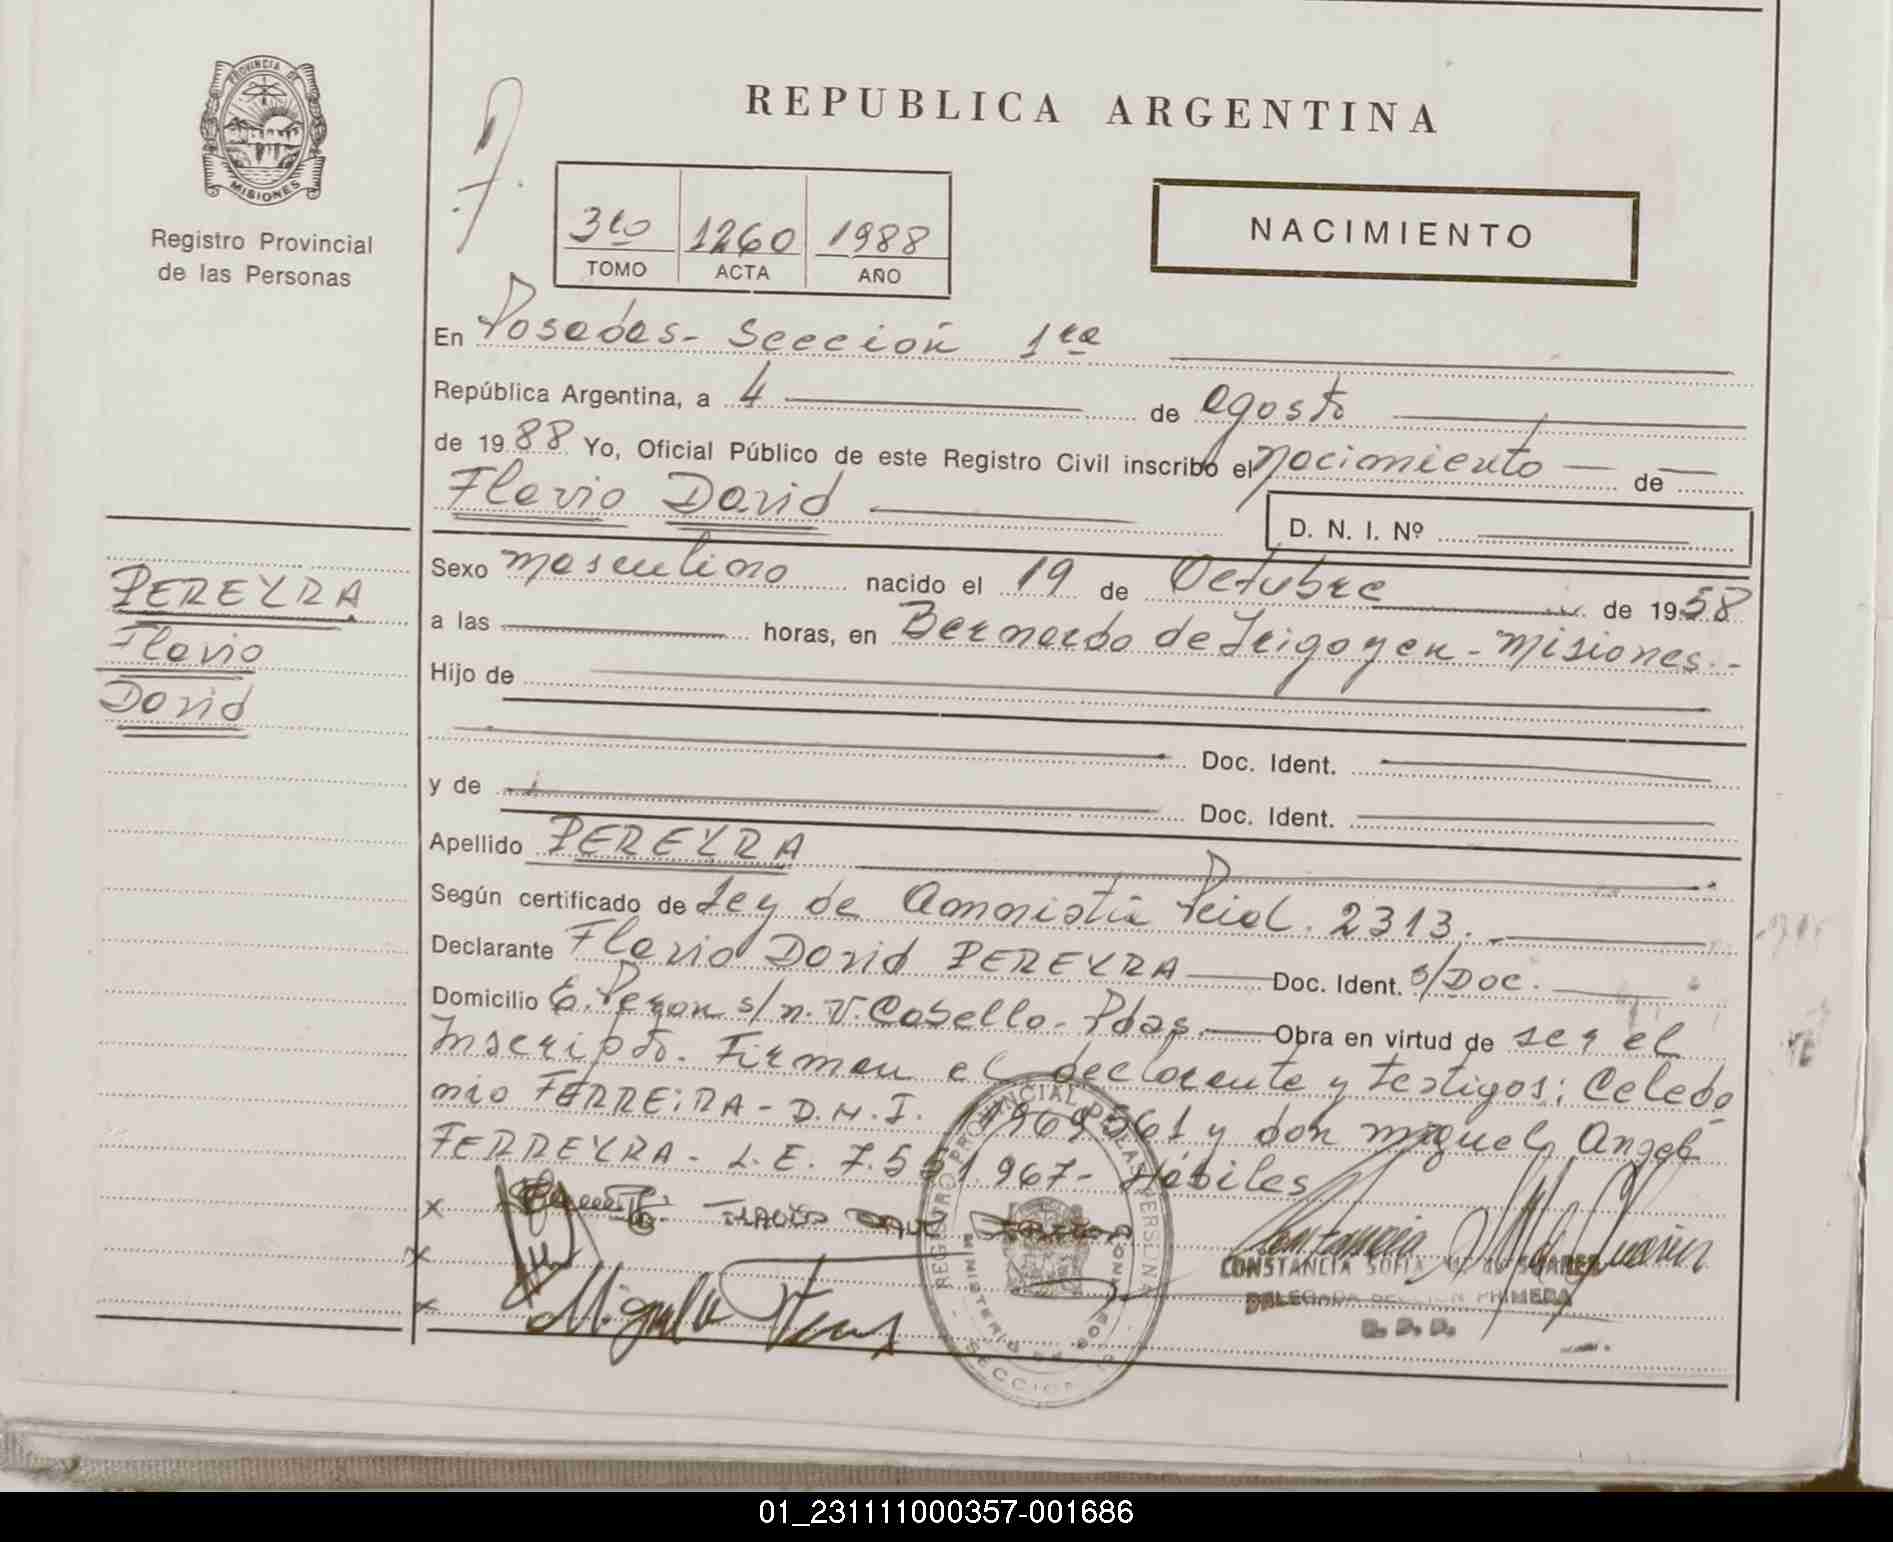 PROVINCIA DE
MISIONES
Registro Provincial
de las Personas
REPUBLICA ARGENTINA
3ro 1260 1988
TOMO ACTA AÑO
NACIMIENTO
En Posadas- Sección 1ra
República Argentina, a 4 de agosto
de 1988 Yo, Oficial Público de este Registro Civil inscribo el nacimiento de
Flavio David
D. N. I. Nº
PEREYRA
Flavio
David
Sexo masculino nacido el 19 de Octubre de 1958
a las horas, en Bernardo de Irigoyen - Misiones.-
Hijo de
Doc. Ident.
y de Doc. Ident.
Apellido PEREYRA
Según certificado de Ley de Amnistía Pcial. 2313.
Declarante Flavio David PEREYRA Doc. Ident. s/Doc.
Domicilio E. Peron s/n. V. Cabello - Pdas. Obra en virtud de ser el
Inscripto. Firman el declarante y testigos: Celedo
nio FERREiRA - D.N.I. 11969561 y don Miguel Angel
FERREYRA - L.E. 7.551.967- Hábiles
REGISTRO PROVINCIAL DE LAS PERSONAS
MINISTERIO DE
SECCION
CONSTANCIA SOFIA M. de SUAREZ
DELEGADA SECCION PRIMERA
R. P. P.
01_231111000357-001686